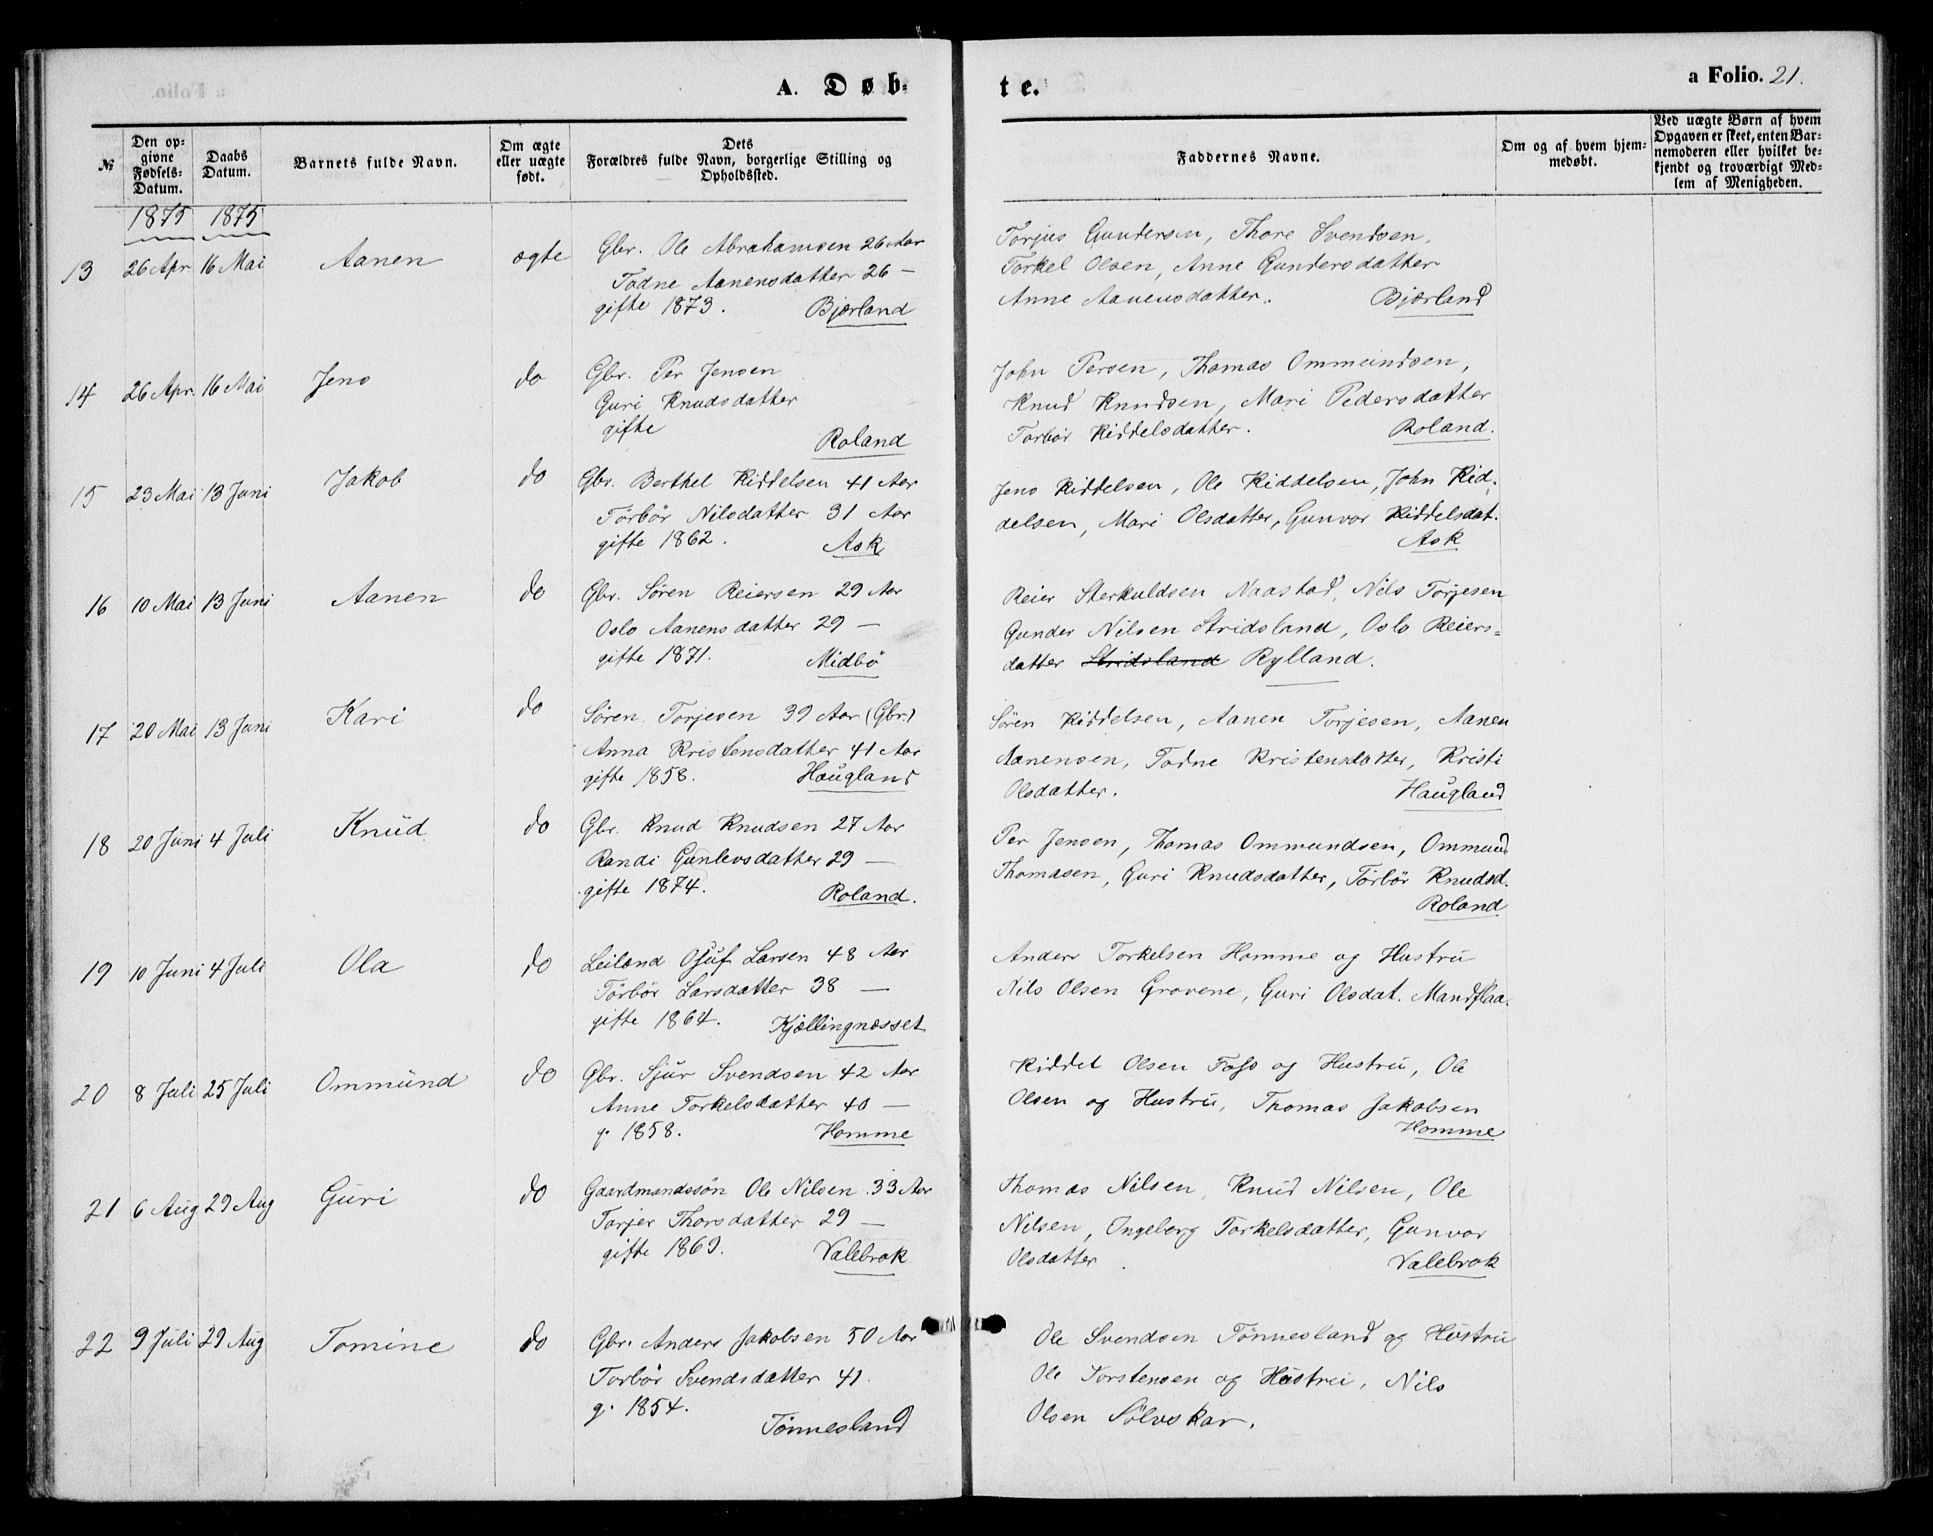 A. Døb-
te.
a Folio. 21.
№
Den op-
givne
Fødsels-
Datum.
Daabs
Datum.
Barnets fulde Navn.
Om ægte
eller uægte
født.
Dets
Forældres fulde Navn, borgerlige Stilling og
Opholdssted.
Faddernes Navne.
Om og af hvem hjem-
medøbt.
Ved uægte Børn af hvem
Opgaven er skeet, enten Bar-
nemoderen eller hvilket be-
kjendt og troværdigt Med-
lem af Menigheden.
1875 1875
13 26 Apr 16 Mai Aanen ægte
Gbr. Ole Abrahamsen 26 Aar
Todne Aanensdatter 26 —
gifte 1873. Bjørland
Torjus Gundersen, Thore Svendsen,
Torkel Olsen, Anne Gundersdatter
Anne Aanensdatter. Bjørland
14 26 Apr. 16 Mai Jens do
Gbr. Per Jensen
Guri Knudsdatter
gifte
Roland
John Persen, Thomas Ommundsen,
Knud Knudsen, Mari Pedersdatter
Torbør Kiddelsdatter. Roland.
15 23 Mai 13 Juni Jakob do
Gbr. Berthel Kiddelsen 41 Aar
Törbör Nilsdatter 31 Aar
gifte 1862. Ask
Jens Kiddelsen, Ole Kiddelsen, John Kid-
delsen, Mari Olsdatter, Gunvor Kiddelsdat.
Ask
16 10 Mai 13 Juni Aanen do
Gbr. Sören Reiersen 29 Aar
Oslo Aanensdatter 29 —
gifte 1871. Midbö
Reier Sterkuldsen Naastad, Nils Torjesen
Gunder Nilsen Stridsland, Oslo Reiers-
datter Stridsland Rylland.
17 20 Mai 13 Juni Kari do
Sören Torjesen 39 Aar (Gbr.)
Anna Kristensdatter 41 Aar
gifte 1858. Haugland
Sören Kiddelsen, Aanen Torjesen, Aanen
Aanensen, Todne Kristensdatter, Kristi
Olsdatter. Haugland
18 20 Juni 4 Juli Knud do
Gbr. Knud Knudsen 27 Aar
Randi Gunlevsdatter 29 —
gifte 1874. Roland.
Per Jensen, Thomas Ommundsen, Ommund
Thomasen, Guri Knudsdatter, Törbör Knudsd.
Roland
19 10 Juni 4 Juli Ola do
Leiland Osuf Larsen 48 Aar
Törbör Larsdatter 38 —
gifte 1864. Kjællingnæsset
Anders Torkelsen Homme og Hustru
Nils Olsen Grovene, Guri Olsdat. Mandflaa.
20 8 Juli 25 Juli Ommund do
Gbr. Sjur Svendsen 42 Aar
Anne Torkelsdatter 40 —
g. 1858. Homme
Kiddel Olsen Foss og Hustru, Ole
Olsen og Hustru, Thomas Jakobsen
Homme
21 6 Aug 29 Aug Guri do
Gaardmandssøn Ole Nilsen 33 Aar
Torjer Thorsdatter 29 —
gifte 1869. Valebrok
Thomas Nilsen, Knud Nilsen, Ole
Nilsen, Ingeborg Torkelsdatter, Gunvor
Olsdatter Valebrok
22 9 Juli 29 Aug Tomine do
Gbr. Anders Jakobsen 50 Aar
Torbör Svendsdatter 41.
g. 1854.
Tönnesland
Ole Svendsen Tönnesland og Hustru
Ole Torstensen og Hustru, Nils
Olsen Sölvskar.